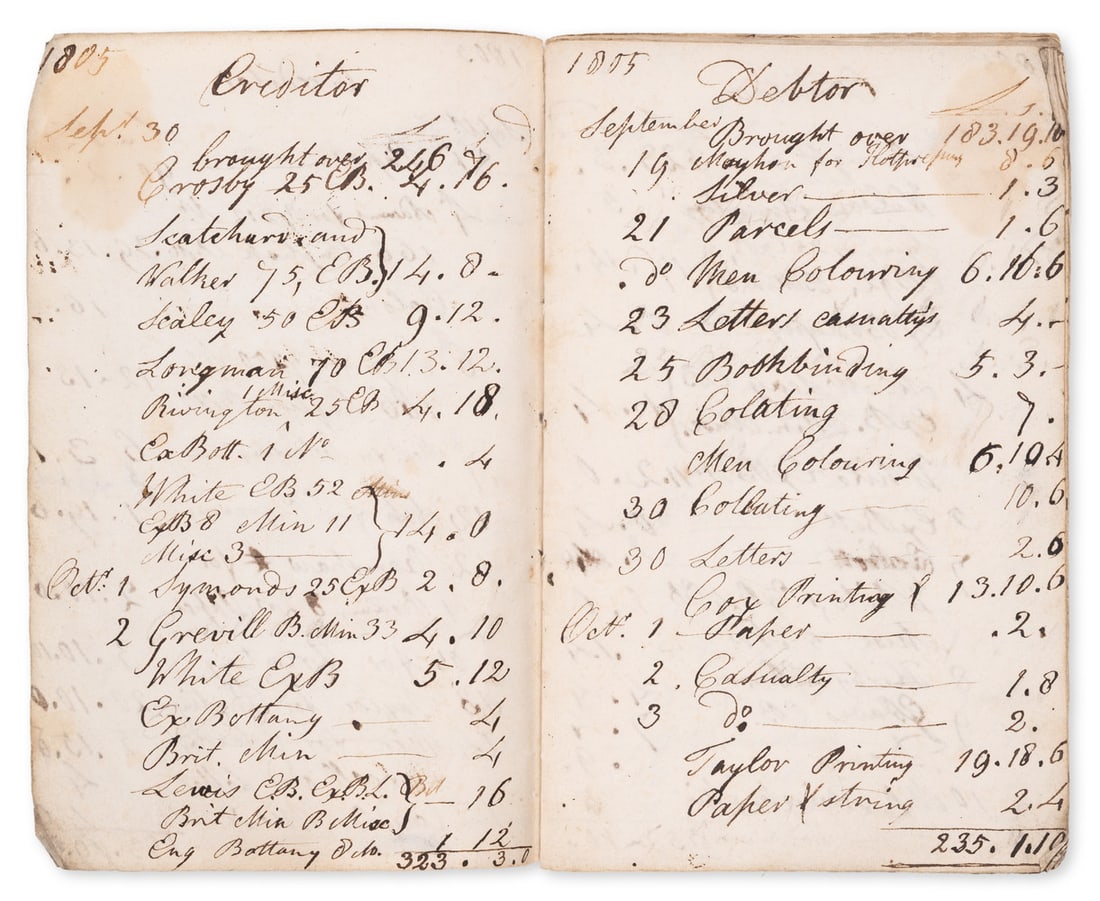 1805
Creditor
Sepr 30
£ s d
brought over 246 " 76
Crosby 25 EB. 4.16.
Scatchard and
Walker 75, EB. 14.8-
Scaley 50 EB 9.12.
Longman 70 EB 13.12.
1 Misc
Rivington 25 EB 4.18.
Ex Bott. 1 No .4
White EB 52
ExB 8 Min 11 14.0
Misc 3
Octr. 1 Symonds 25 ExB 2.8.
2 Grevill B. Min 33 4.10
White ExB 5.12
Ex Bottany 4
Brit. Min 4
Lewis EB. ExB.L. Bot 16
Brit Min B Misc
Eng Bottany 8 1 12
323.3.0
1805
Debtor
£ s.
September Brought over 183.19.10
19 for Hotpressing 8.6
Silver 1.3
21 Parcels 1.6
do Men Colouring 6.16:6
23 Letters casualtys 4.-
25 Bothbinding 5.3.-
28 Colating 7.
Men Colouring 6.10 4
30 Collating 10.6
30 Letters 2.6
Cox Printing 13.10.6
Octr. 1 Paper .2.
2. Casualty 1.8
3 do. 2.
Taylor Printing 19.18.6
Paper & string 2.4
235.1.10